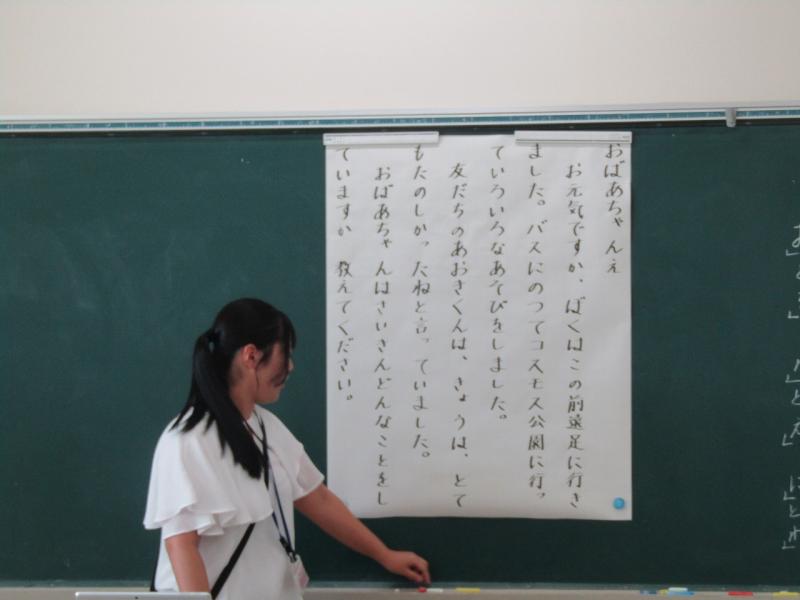 おばあちゃんえ
お元気ですか、ぼくはこの前遠足に行き
ました。バスにのつてコスモス公園に行っ
ていろいろなあそびをしました。
友だちのあおきくんは、きょうは、とて
もたのしかったねと言っていました。
おばあちゃんはさいきんどんなことをし
ていますか　教えてください。